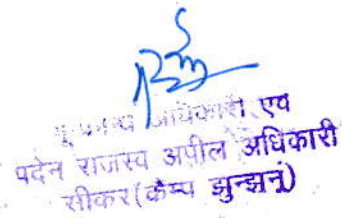 अधिकारी एवं
पदेन राजस्व अपील अधिकारी
सीकर(कैम्प झुन्झनूं)